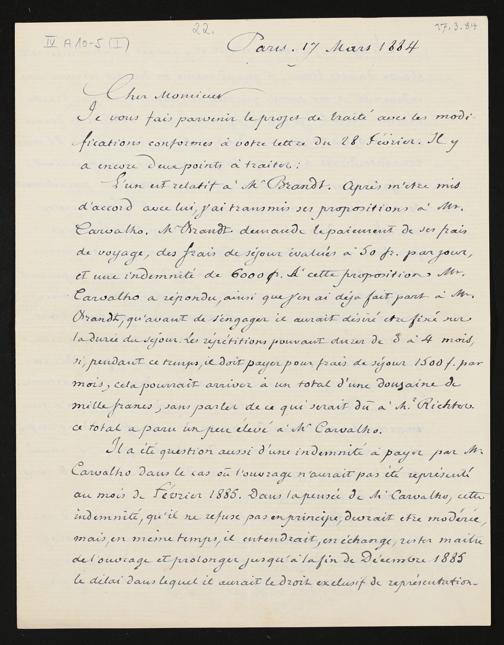 IV A 10-5 (I)
22.
17.3.84
Paris. 17 Mars 1884
Cher Monsieur
Je vous fais parvenir le projet de traité avec les modi-
fications conformes à votre lettre du 28 Février. Il y
a encore deux points à traiter:
L'un est relatif à Mr Brandt. Après m'être mis
d'accord avec lui, j'ai transmis ses propositions à Mr.
Carvalho. Mr Brandt demande le paiement de ses frais
de voyage, des frais de séjour évalués à 50 fr. par jour,
et une indemnité de 6000 fr. A cette proposition Mr.
Carvalho a répondu, ainsi que j'en ai déja fait part à Mr.
Brandt, qu'avant de s'engager il aurait désiré etre fixé sur
la durée du séjour. Les répétitions pouvant durer de 3 à 4 mois,
si, pendant ce temps, il doit payer pour frais de séjour 1500 f. par
mois, cela pourrait arriver à un total d'une douzaine de
mille francs, sans parler de ce qui serait dû à Mr. Richter.
ce total a paru un peu élevé à Mr Carvalho.
Il a été question aussi d'une indemnité à payer par Mr.
Carvalho dans le cas où l'ouvrage n'aurait pas été représenté
au mois de Février 1885. Dans la pensée de Mr Carvalho, cette
indemnité, qu'il ne refuse pas en principe, devrait etre modérée,
mais, en meine temps, il entendrait, en échange, rester maitre
de l'ouvrage et prolonger jusqu'à la fin de Décembre 1885
le délai dans lequel il aurait le droit exclusif de représentation-